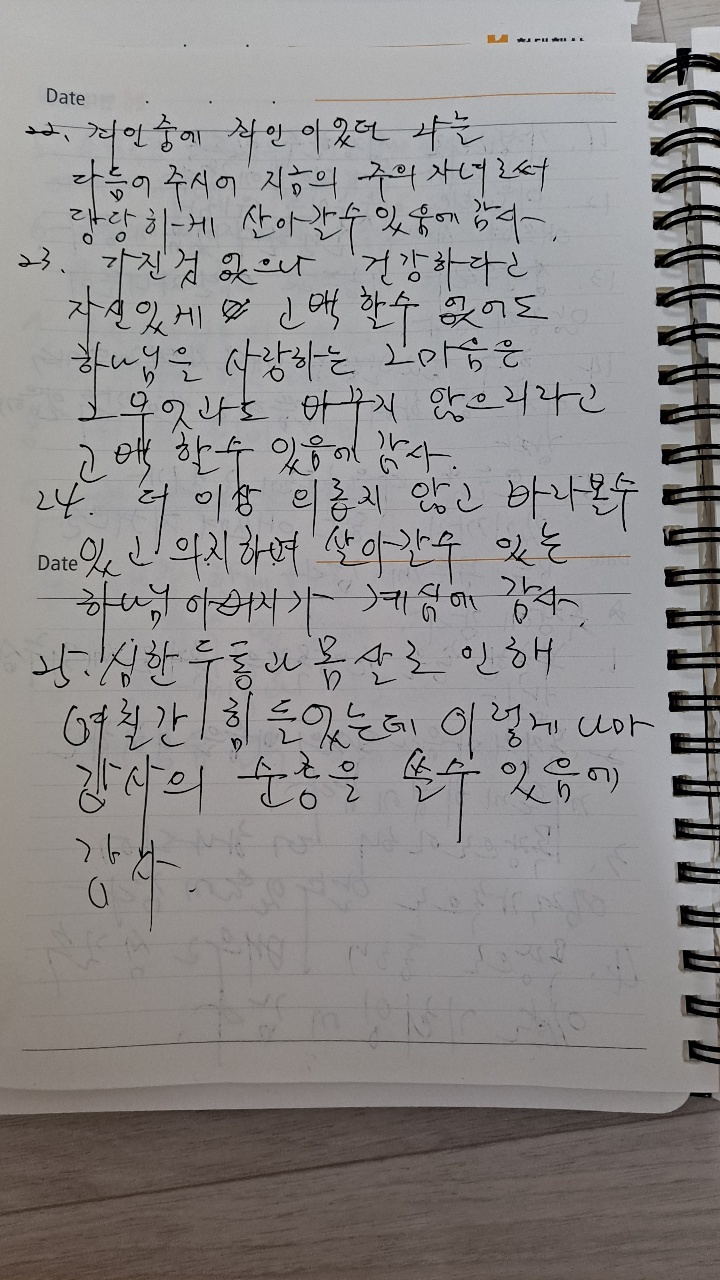 Date
22. 죄인중에 죄인이었던 나를
다듬어 주시어 지금의 주의 자녀로써
당당하게 살아갈수 있음에 감사.
23. 가진것 없으나 건강하다고
자신있게 고백 할수 없어도
하나님을 사랑하는 그마음은
그무엇과도 바꾸지 않으리라고
고백 할수 있음에 감사.
24. 더 이상 외롭지 않고 바라볼수
Date 있고 의지하며 살아갈수 있는
하나님 아버지가 계심에 감사.
25. 심한 두통과 몸살로 인해
여칠간 힘들었는데 이렇게 나마
감사의 순종을 쓸수 있음에
감사.